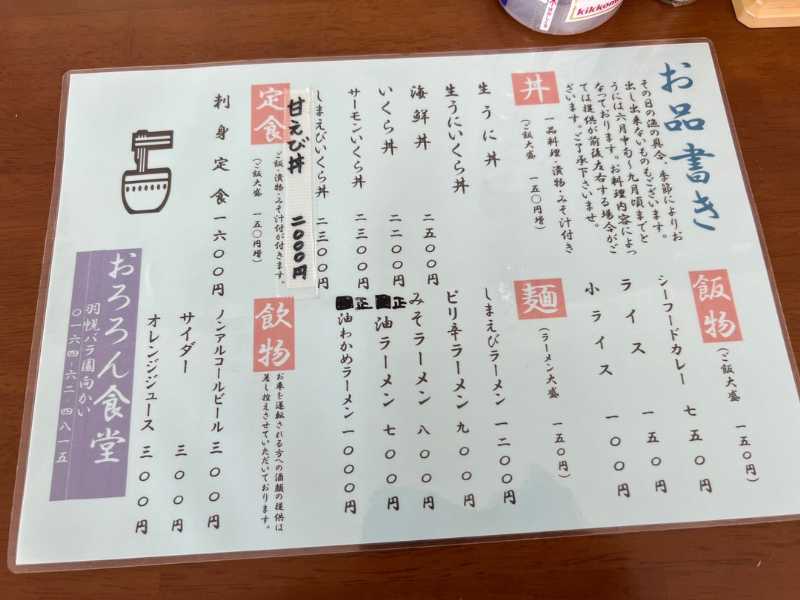 お品書き
その日の漁の具合、季節によりお
出し出来ないものもございます。
うには六月中旬〜九月頃までと
なっております。お料理内容によっ
ては提供が前後左右する場合がご
ざいます。ご了承下さいませ。
丼
一品料理・漬物・みそ汁付き
(ご飯大盛 一五〇円増)
生うに丼
生うにいくら丼
海鮮丼 二五〇〇円
いくら丼 二二〇〇円
サーモンいくら丼 二三〇〇円
しまえびいくら丼 二三〇〇円
甘えび丼 二〇〇〇円
定食
ご飯・漬物・みそ汁が付きます。
(ご飯大盛 一五〇円増)
刺身定食 一六〇〇円
飯物
(ご飯大盛 一五〇円)
シーフードカレー 七五〇円
ライス 一五〇円
小ライス 一〇〇円
麺
(ラーメン大盛 一五〇円)
しまえびラーメン 一二〇〇円
ピリ辛ラーメン 九〇〇円
みそラーメン 八〇〇円
正油ラーメン 七〇〇円
正油わかめラーメン 一〇〇〇円
飲物
お車を運転される方への酒類の提供は
差し控えさせていただいております。
ノンアルコールビール 三〇〇円
サイダー 三〇〇円
オレンジジュース 三〇〇円
おろろん食堂
羽幌バラ園向かい
〇一六四-六二-四八一五
kikkom